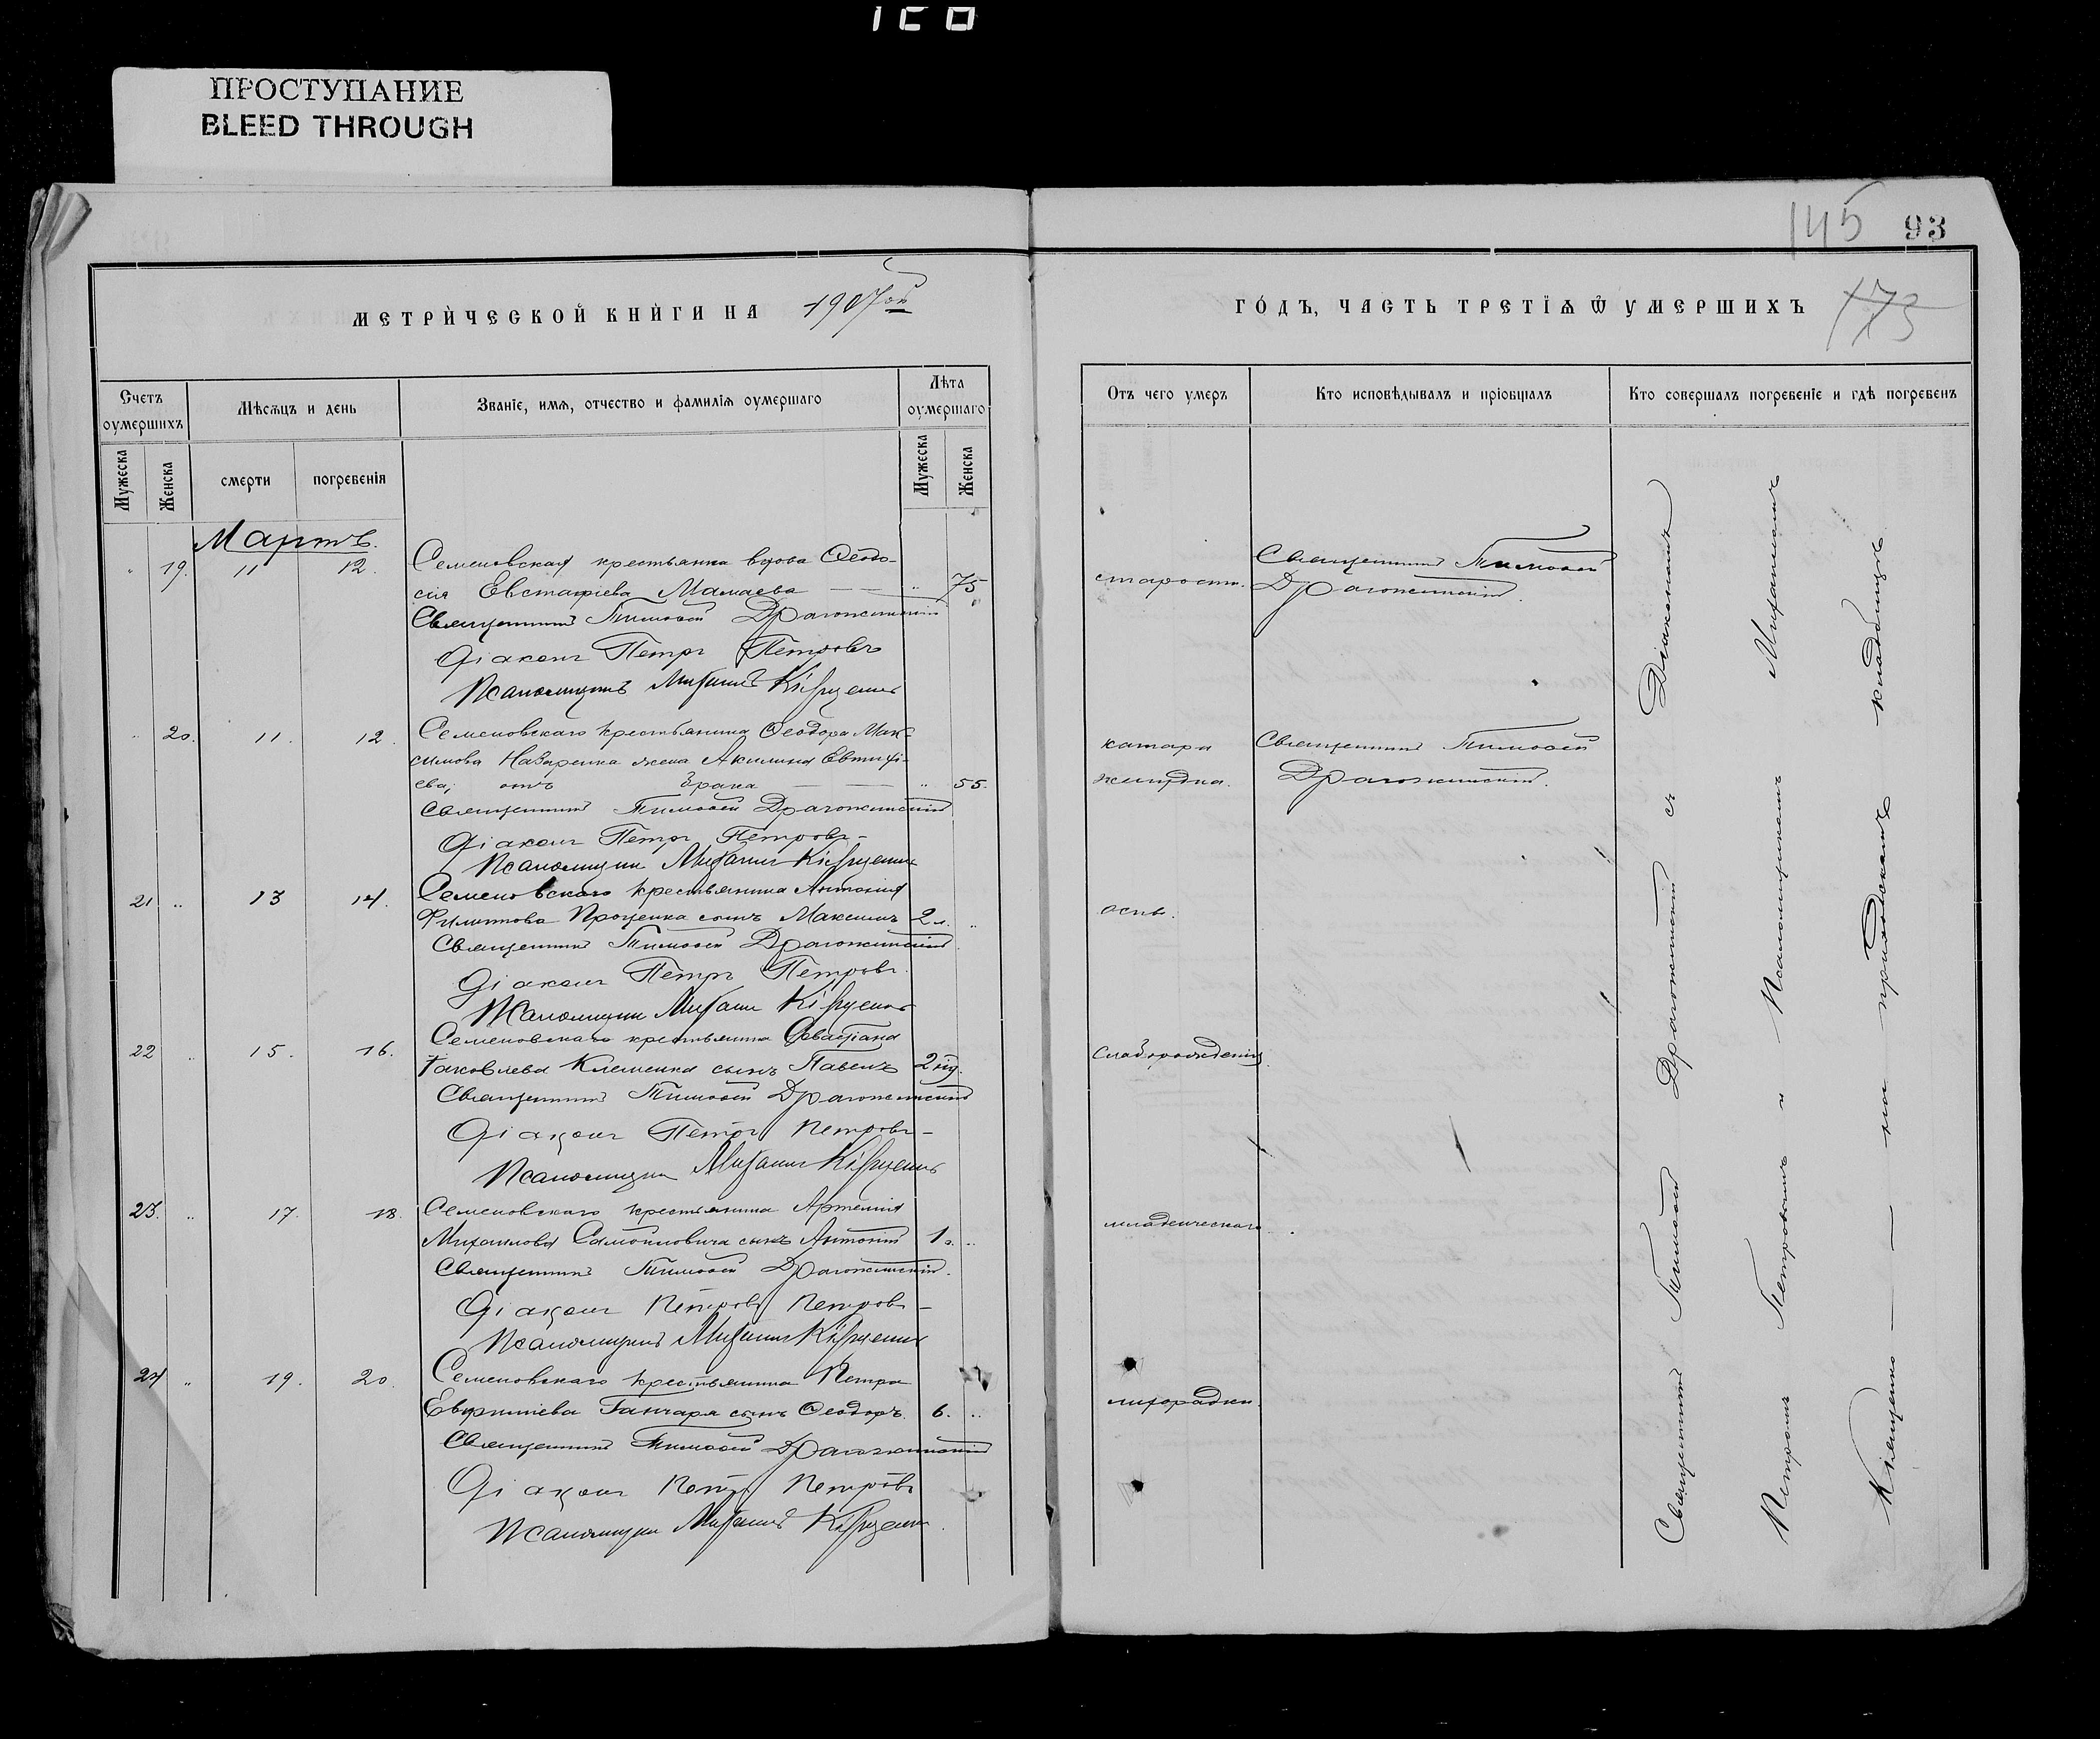 ПРОСТУПАНИЕ
BLEED THROUGH
145 93
МЕТРИЧЕСКОЙ КНИГИ НА 1907ой
ГОДЪ, ЧАСТЬ ТРЕТІЯ Ѿ УМЕРШИХЪ
173
Счетъ оумершихъ
Мѣсяцъ и день
Званіе, имя, отчество и фамилія оумершаго
Лѣта оумершаго
Отъ чего умеръ
Кто исповѣдывалъ и пріобщалъ
Кто совершалъ погребеніе и гдѣ погребенъ
Мужеска
Женска
смерти
погребенія
Мужеска
Женска
Мартъ.
19. 11 12. Семеновская крестьянка вдова Ѳеодо-
сія Евстафіева Мамаева 75
старости.
Священникъ Тимоѳей
Драгожинскій.
Священникъ Тимоѳей Драгожинскій
Діаконъ Петръ Петровъ
Псаломщикъ Михаилъ
20. 11. 12. Семеновскаго крестьянина Ѳеодора Мак-
симова Назаренка жена Акилина Евтихі-
ева, отъ брака 55.
катара
желудка.
Священникъ Тимоѳей
Драгожинскій.
Священникъ Тимоѳей Драгожинскій
Діаконъ Петръ Петровъ
Псаломщикъ Михаилъ
21 13 14. Семеновскаго крестьянина Антонія
Филиппова Проценка сынъ Максимъ 2 л.
оспы.
Священникъ Тимоѳей Драгожинскій
Діаконъ Петръ Петровъ
Псаломщикъ Михаилъ
22 15. 16. Семеновскаго крестьянина Севастіана
Іаковлева Клименка сынъ Павелъ 2
слаборожденія
Священникъ Тимоѳей Драгожинскій
Діаконъ Петръ Петровъ
Псаломщикъ Михаилъ
23. 17. 18. Семеновскаго крестьянина Артемія
Михаилова Самойловича сынъ Антоній 1
младенческаго
Священникъ Тимоѳей Драгожинскій.
Діаконъ Петровъ
Псаломщикъ Михаилъ
24 19. 20. Семеновскаго крестьянина Петра
Ганчаря сынъ Ѳеодоръ. 6.
лихорадки.
Священникъ Тимоѳей Драгожинскій
Діаконъ Петръ Петровъ
Псаломщикъ Михаилъ
Священникъ Тимоѳей Драгожинскій съ Діакономъ
Петромъ Петровымъ и Псаломщикомъ Михаиломъ
на приходскомъ кладбищѣ